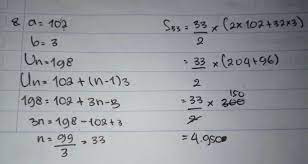 8. a = 102
b = 3
Un = 198
Un = 102 + (n-1)3
198 = 102 + 3n - 3
3n = 198 - 102 + 3
n = 99/3 = 33
S33 = 33/2 × (2×102+32×3)
= 33/2 × (204+96)
= 33/2 × 300 150
= 4.950